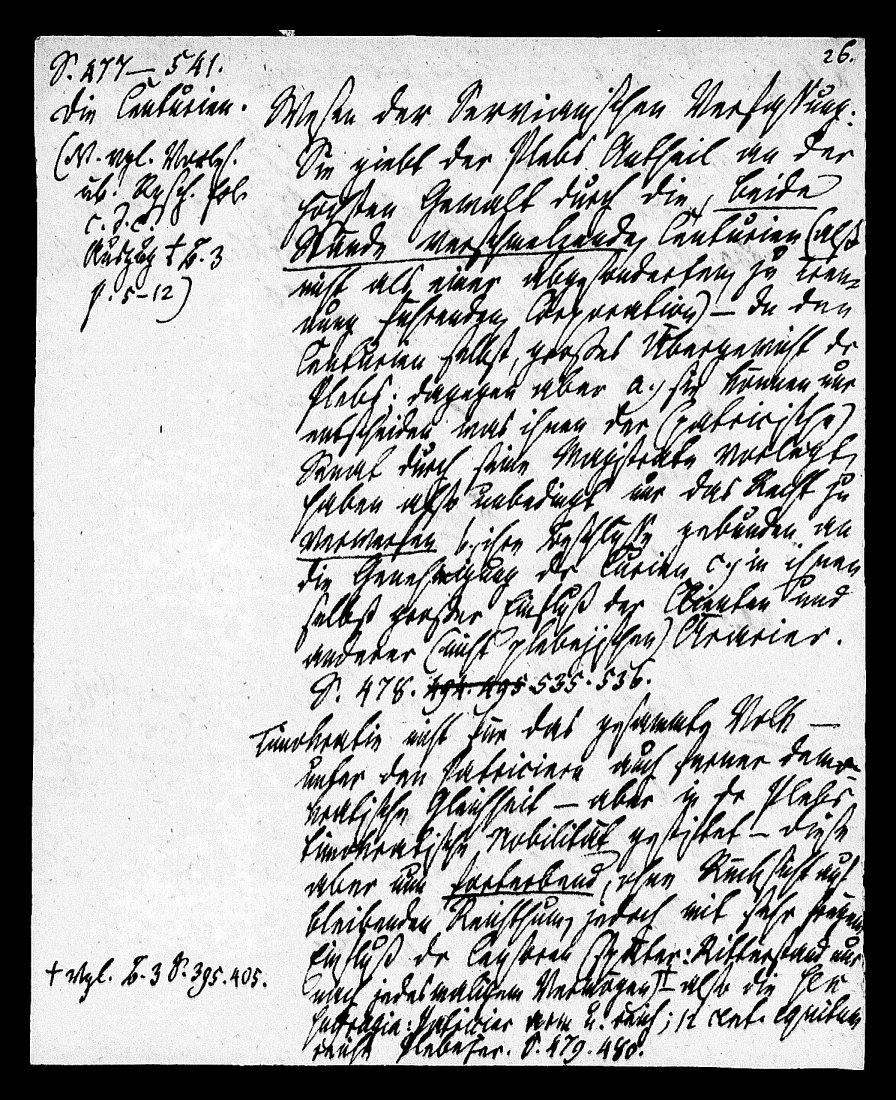 26.
S. 477 – 541.
Die Centurien.
(N. vgl. Vorles.
üb. Rg
c. d. c.
Auszug † B. 3
p. 5–12)
Wesen der Servianischen Verfassung:
Sie giebt der Plebs Antheil an der
höchsten Gewalt durch die, beide
Stände verschmelzende, Centurien (also
nicht als einer abgesonderten, zu Tren-
nung führenden Corporation) – In den
Centurien selbst, großes Übergewicht der
Plebs: dagegen aber a.) sie können nur
entscheiden was ihnen der (patricische)
Senat durch seine Magistrate vorlegt,
haben also unbedingt nur das Recht zu
verwerfen b, ihre Beschlüsse gebunden an
die Genehmigung der Curien c., in ihnen
selbst großer Einfluß der Clienten und
anderer (nicht plebejischen) Ärarier.
S. 478. 494. 495 535. 536.
Timokratie nicht für das gesammte Volk –
unter den Patriciern auch ferner demo-
kratische Gleichheit – aber in der Plebs
timokratische Nobilität gestiftet – diese
aber nun forterbend, ohne Rücksicht auf
bleibenden Reichthum, jedoch mit sehr freiem
Einfluß der Censoren (später: Ritterstand nur
nach jedesmaligem Vermögen)† also die sex
suffragia: Patricier arm u. reich; 12 cent. equitum
reiche Plebejer. S. 479. 480.
† Vgl. B. 3 S. 395. 405.